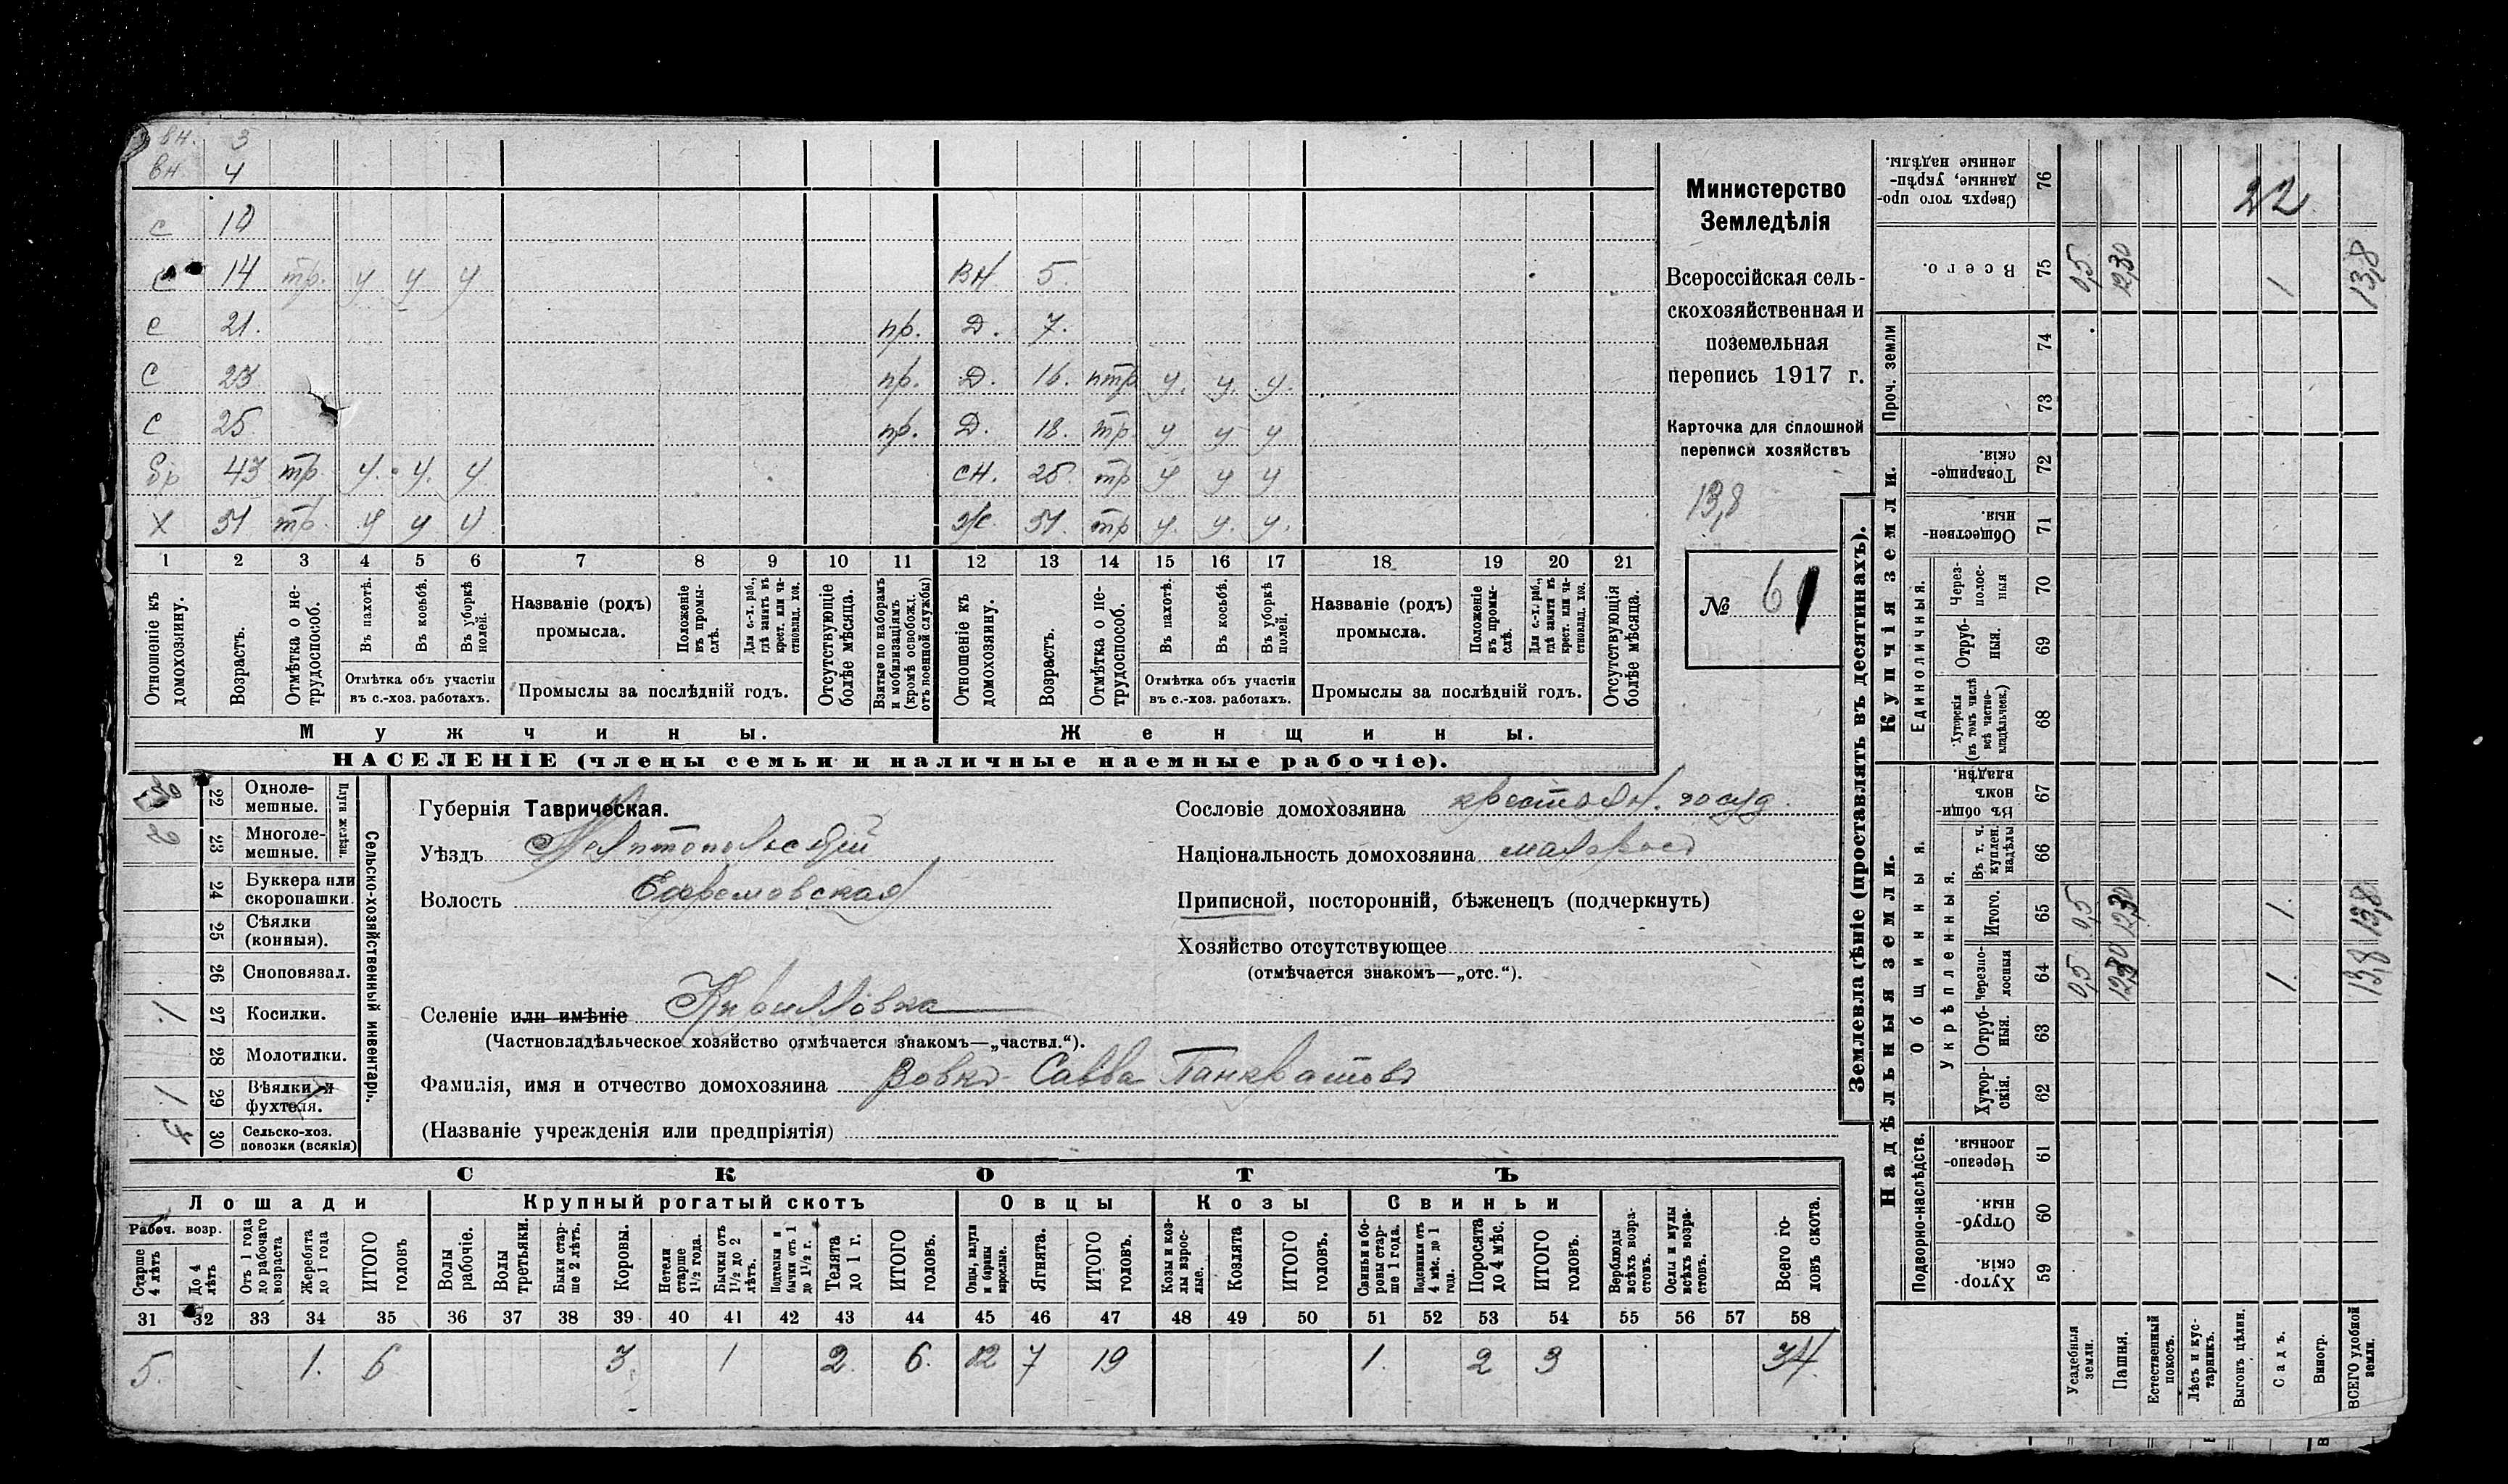 вн. 3
вн 4
с 10
с 14 тр. у у у вн. 5.
с 21. пр. Д. 7.
с 23 пр. Д. 16. птр у. у. у.
с 25 пр. Д. 18. тр у у у
бр 43 тр у. у. у сн. 25. тр у у у
х 51 тр. у у у ж. 51. тр у. у. у.
1 2 3 4 5 6 7 8 9 10 11 12 13 14 15 16 17 18 19 20 21
Отношеніе къ домохозяину.
Возрастъ.
Отмѣтка о не-трудоспособ.
Въ пахотѣ.
Въ косьбѣ.
Въ уборкѣ полей.
Отмѣтка объ участіи
въ с.-хоз. работахъ.
Названіе (родъ)
промысла.
Положеніе въ промы-слѣ.
Для с.-х. раб., гдѣ занятъ въ крест. или ча-стновлад. хоз.
Промыслы за послѣдній годъ.
Отсутствующіе болѣе мѣсяца.
Взятые по наборамъ и мобилизаціямъ (кромѣ освобожд. отъ военной службы)
Отношеніе къ домохозяину.
Возрастъ.
Отмѣтка о не-трудоспособ.
Въ пахотѣ.
Въ косьбѣ.
Въ уборкѣ полей.
Отмѣтка объ участіи
въ с.-хоз. работахъ.
Названіе (родъ)
промысла.
Положеніе въ промы-слѣ.
Для с.-х. раб., гдѣ занята въ крест. или ча-стновлад. хоз.
Промыслы за послѣдній годъ.
Отсутствующія болѣе мѣсяца.
Мужчины. Женщины.
НАСЕЛЕНІЕ (члены семьи и наличные наемные рабочіе).
Министерство
Земледѣлія
Всероссійская сель-
скохозяйственная и
поземельная
перепись 1917 г.
Карточка для сплошной
переписи хозяйствъ
13,8
№ 61
22 Одноле-мешные.
23 Многоле-мешные.
Плуги желѣзн.
24 Буккера или скоропашки.
25 Сѣялки (конныя).
26 Сноповязал.
27 Косилки. 1.
28 Молотилки.
29 Вѣялки и фухтеля. 1
30 Сельско-хоз. повозки (всякія)
Сельско-хозяйственный инвентарь.
Губернія Таврическая.
Уѣздъ Мелитопольскій
Волость Ефремовская
Селеніе или имѣніе Кирилловка
(Частновладѣльческое хозяйство отмѣчается знакомъ—„частвл.“).
Фамилія, имя и отчество домохозяина Вовкъ Савва Панкратовъ
(Названіе учрежденія или предпріятія)
Сословіе домохозяина крестьян. госуд.
Національность домохозяина малоросъ
Приписной, посторонній, бѣженецъ (подчеркнуть)
Хозяйство отсутствующее
(отмѣчается знакомъ—„отс.“).
СКОТЪ
Лошади Крупный рогатый скотъ Овцы Козы Свиньи
Рабоч. возр.
Старше 4 лѣтъ
До 4 лѣтъ
Отъ 1 года до рабочаго возраста
Жеребята до 1 года
ИТОГО головъ
Волы рабочіе.
Волы третьяки.
Быки стар-ше 2 лѣтъ.
Коровы.
Нетели старше 1 1/2 года.
Бычки отъ 1 1/2 до 2 лѣтъ.
Подтелки и бычки отъ 1 до 1 1/2 г.
Телята до 1 г.
ИТОГО головъ.
Овцы, валухи и бараны взрослые.
Ягнята.
ИТОГО головъ.
Козы и коз-лы взрос-лые.
Козлята
ИТОГО головъ.
Свиньи и бо-ровы стар-ше 1 года.
Подсвинки отъ 4 мѣс. до 1 года.
Поросята до 4 мѣс.
ИТОГО головъ.
Верблюды всѣхъ возра-стовъ.
Ослы и мулы всѣхъ возра-стовъ.
Всего го-ловъ скота.
31 32 33 34 35 36 37 38 39 40 41 42 43 44 45 46 47 48 49 50 51 52 53 54 55 56 57 58
5. 1. 6 3. 1 2. 6. 12 7 19 1. 2 3 34
Землевладѣніе (проставлять въ десятинахъ).
Купчія земли.
Надѣльныя земли.
Сверхъ того про-данные, укрѣп-ленные надѣлы. 76 22
Всего. 75 0,5 12,30 1 13,8
Проч. земли 74 73
Товарище-скія. 72
Обществен-ныя. 71
Единоличныя.
Через-полос-ныя 70
Отруб-ныя. 69
Хуторскія (въ томъ числѣ всѣ частно-владѣльческ.) 68
Общинныя.
Въ общи-номъ владѣн. 67
Укрѣпленныя.
Въ т. ч. куплен. надѣлы 66
Итого. 65 0,5 12,30 1. 13,8
Черезпо-лосныя 64 0,5 12,30 1. 13,8
Отруб-ныя. 63
Хутор-скія. 62
Подворно-наслѣдств.
Черезпо-лосныя. 61
Отруб-ныя. 60
Хутор-скія. 59
Усадебныя земли.
Пашня.
Естественный покосъ.
Лѣсъ и кус-тарникъ.
Выгонъ цѣлин.
Садъ.
Виногр.
ВСЕГО удобной земли.